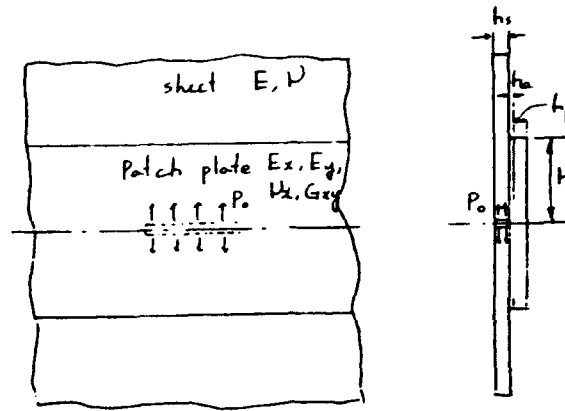 sheet E, ν
Patch plate Ex, Ey,
νx, Gxy
P₀
hs
ha
h
H
P₀